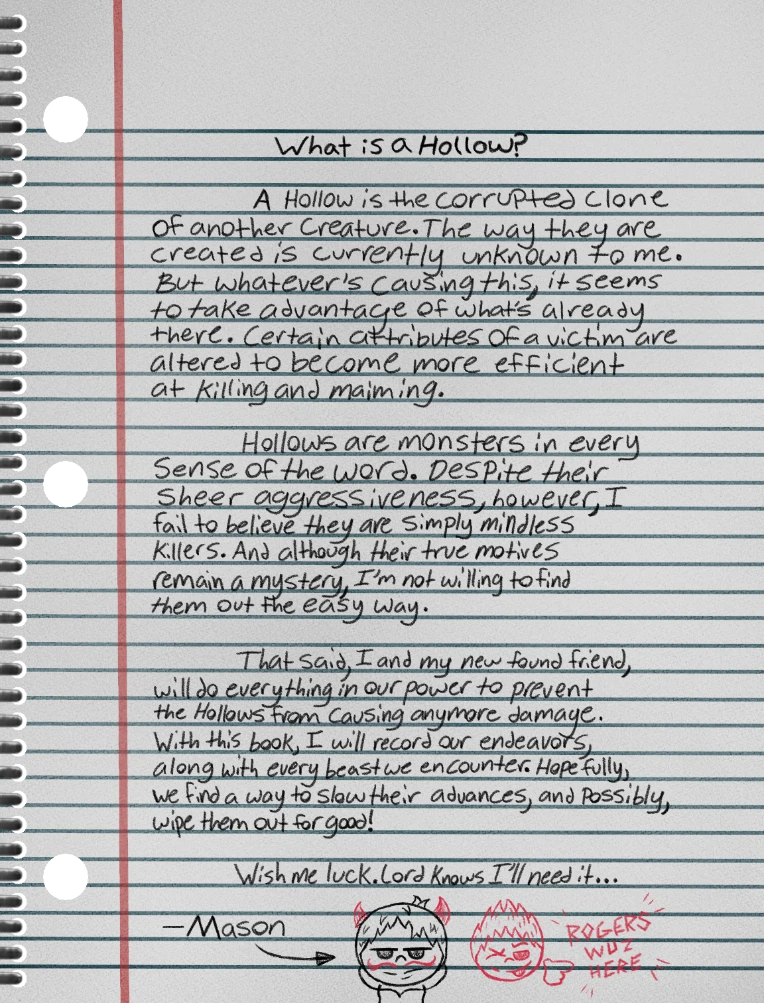 What is a Hollow?
A Hollow is the corrupted clone
of another creature. The way they are
created is currently unknown to me.
But whatever's causing this, it seems
to take advantage of what's already
there. Certain attributes of a victim are
altered to become more efficient
at killing and maiming.
Hollows are monsters in every
sense of the word. Despite their
sheer aggressiveness, however, I
fail to believe they are simply mindless
killers. And although their true motives
remain a mystery, I'm not willing to find
them out the easy way.
That said, I and my new found friend,
will do everything in our power to prevent
the Hollows from causing anymore damage.
With this book, I will record our endeavors,
along with every beast we encounter. Hopefully,
we find a way to slow their advances, and possibly,
wipe them out for good!
Wish me luck. Lord knows I'll need it...
—Mason
ROGERS
WUZ
HERE